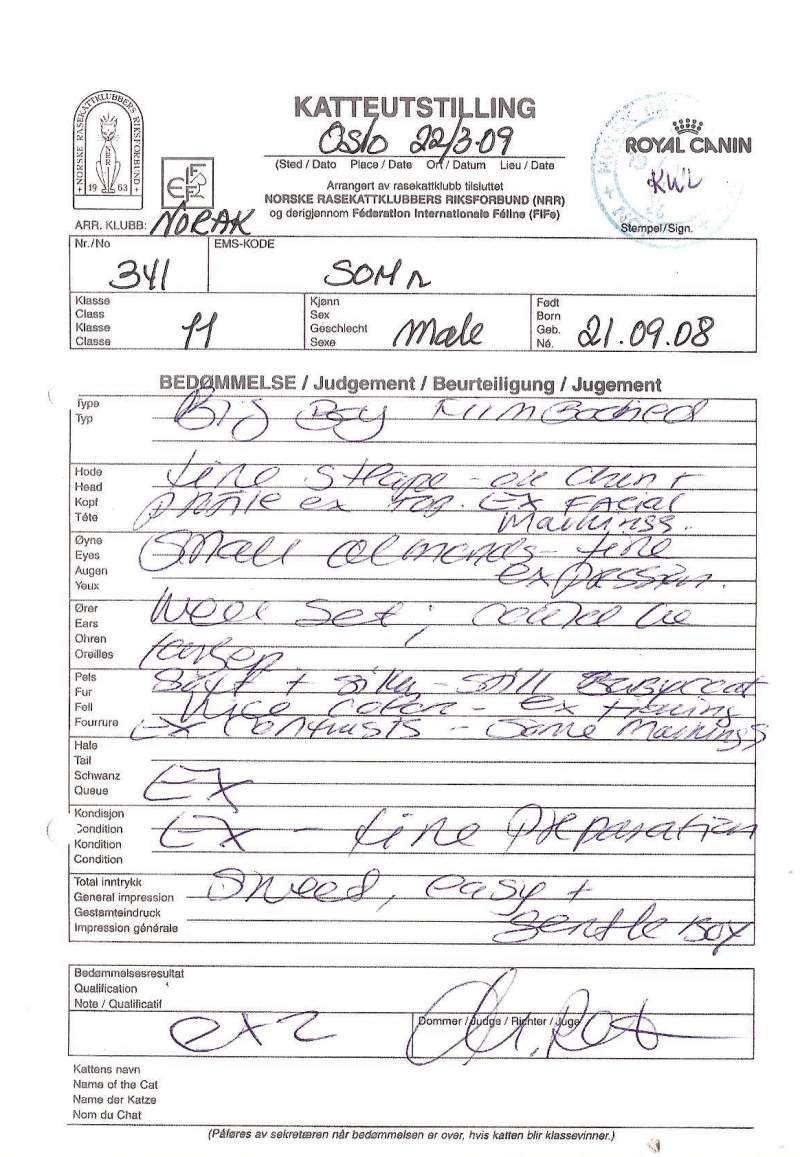 NORSKE RASEKATTKLUBBERS RIKSFORBUND
NRR
19 63
FIFe
KATTEUTSTILLING
Oslo 22/3-09
(Sted / Dato Place / Date Ort / Datum Lieu / Date
ROYAL CANIN
KWL
Arrangert av rasekattklubb tilsluttet
NORSKE RASEKATTKLUBBERS RIKSFORBUND (NRR)
og derigjennom Féderation Internationale Féline (FIFe)
Stempel/Sign.
ARR. KLUBB: NORAK
Nr./No
341
EMS-KODE
SOM n
Klasse
Class
Klasse
Classe
11
Kjønn
Sex
Geschlecht
Sexe
Male
Født
Born
Geb.
Né.
21.09.08
BEDØMMELSE / Judgement / Beurteiligung / Jugement
Type
Typ
Big Boy Firm Bodied
Hode
Head
Kopf
Tête
fine shape - ok chin +
profile ex top. Ex Facial
Markings.
Øyne
Eyes
Augen
Yeux
Small almonds - fine
expression.
Ører
Ears
Ohren
Oreilles
Well set; could be
larger
Pels
Fur
Fell
Fourrure
Soft + silky - still Babycoat
Nice color - ex ticking
Ex Contrasts - Some Markings
Hale
Tail
Schwanz
Queue
Ex
Kondisjon
Condition
Kondition
Condition
Ex - fine Preparation
Total inntrykk
General impression
Gestamteindruck
Impression générale
Sweet, easy +
gentle Boy
Bedømmelsesresultat
Qualification
Note / Qualificatif
ex 2
Dommer / Judge / Richter / Juge
Kattens navn
Name of the Cat
Name der Katze
Nom du Chat
(Påføres av sekretæren når bedømmelsen er over, hvis katten blir klassevinner.)